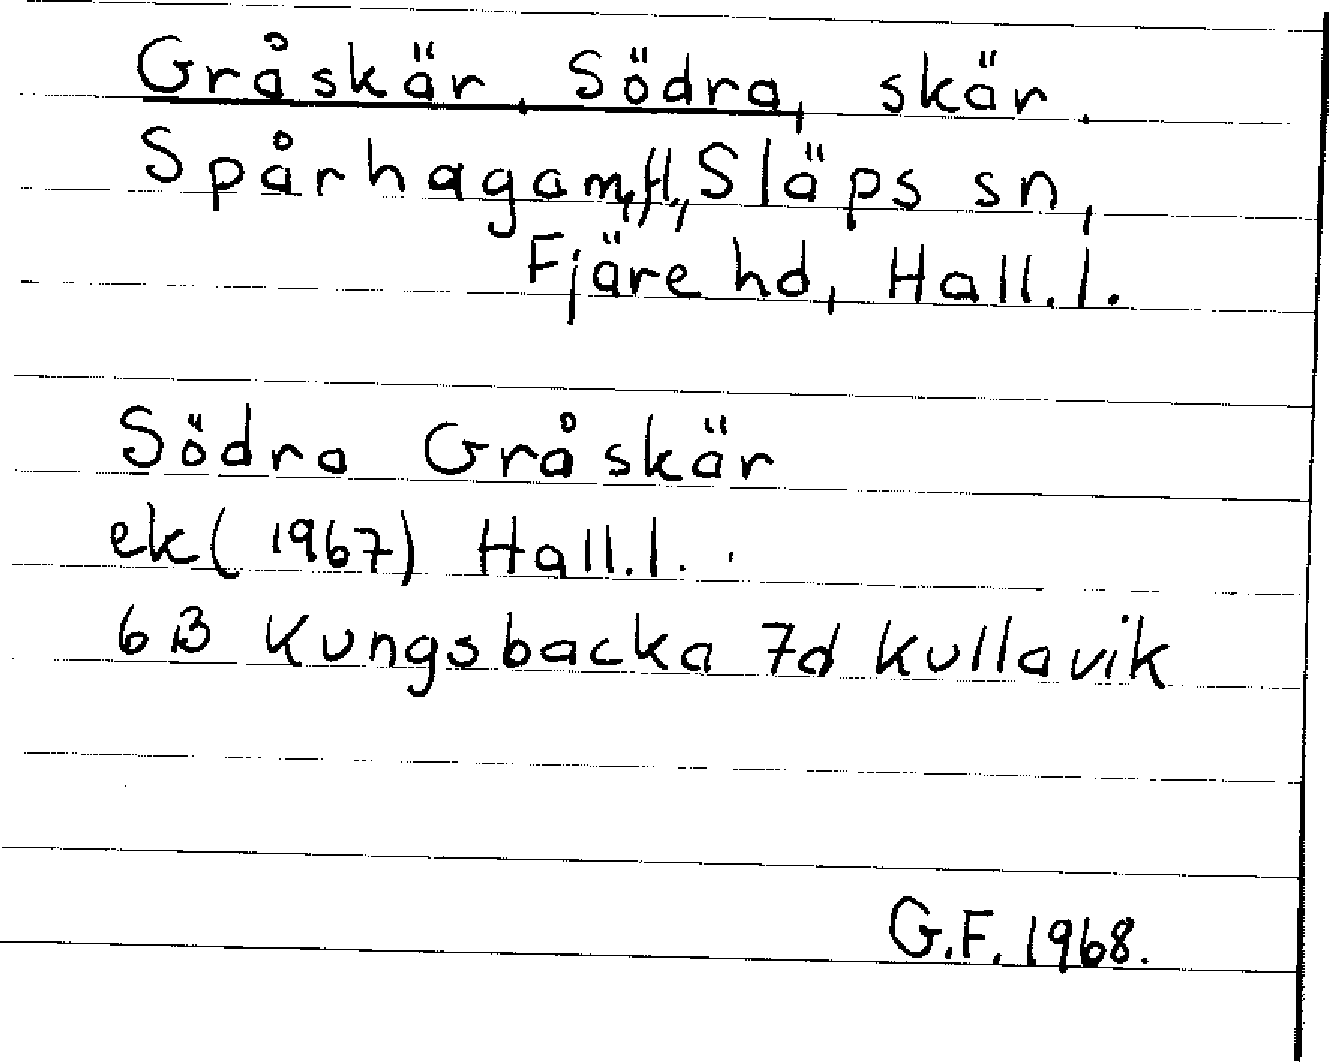 Gråskär, Södra, skär.
Spårhaga m.fl., Släps sn,
Fjäre hd, Hall. l.
Södra Gråskär
ek (1967) Hall. l.
6B Kungsbacka 7d Kullavik
G.F. 1968.